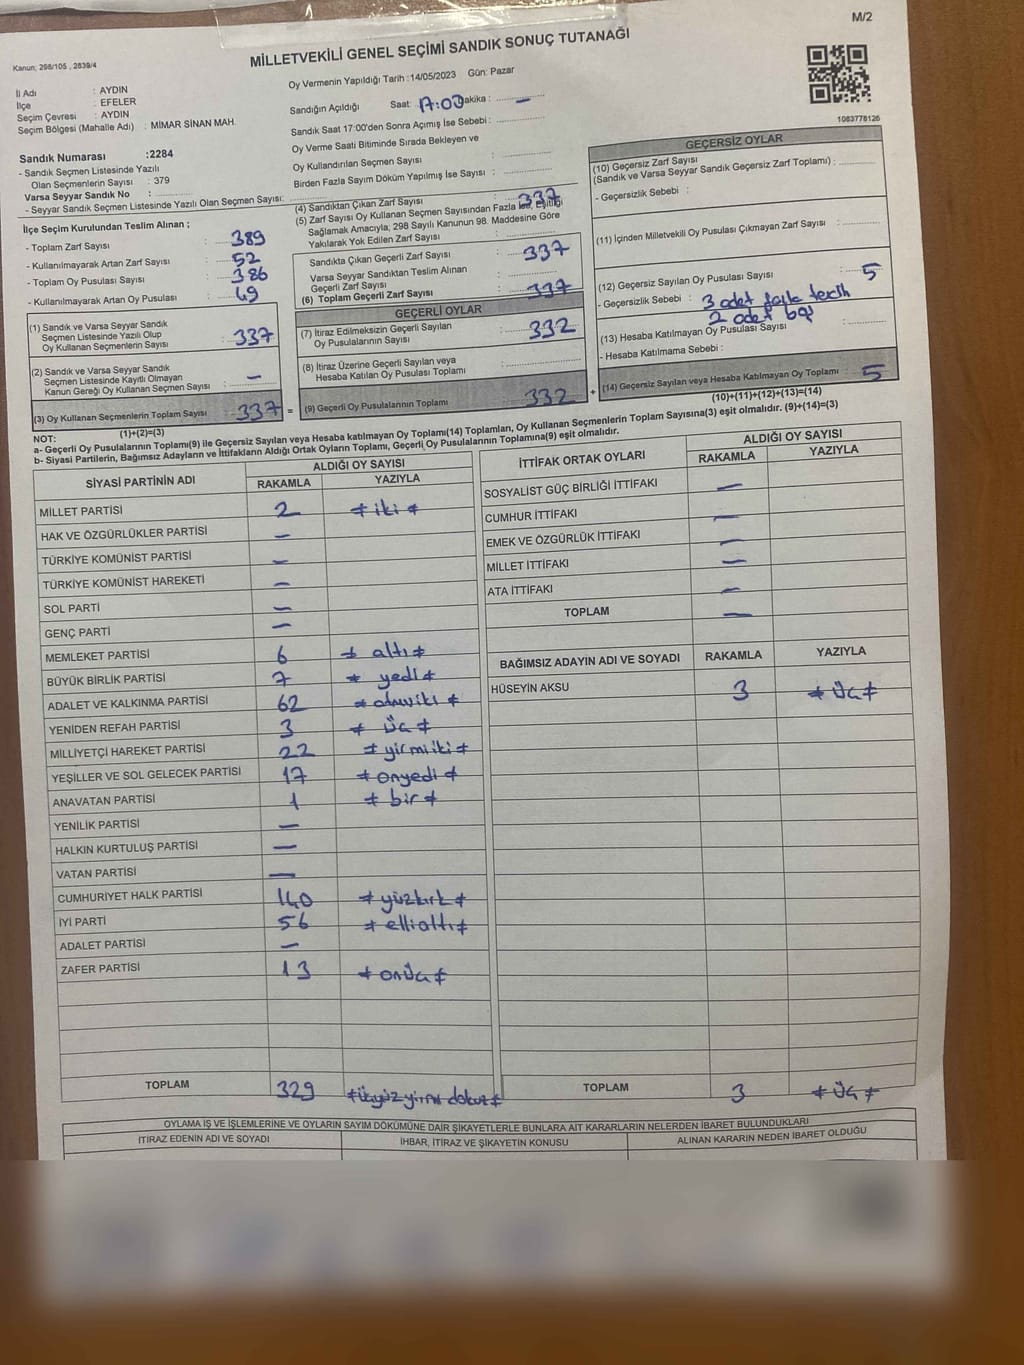 M/2
MİLLETVEKİLİ GENEL SEÇİMİ SANDIK SONUÇ TUTANAĞI
Kanun: 298/105 , 2839/4
İl Adı : AYDIN
İlçe : EFELER
Seçim Çevresi : AYDIN
Seçim Bölgesi (Mahalle Adı) : MİMAR SİNAN MAH.
Sandık Numarası :2284
- Sandık Seçmen Listesinde Yazılı
Olan Seçmenlerin Sayısı : 379
Varsa Seyyar Sandık No :
- Seyyar Sandık Seçmen Listesinde Yazılı Olan Seçmen Sayısı:
Oy Vermenin Yapıldığı Tarih :14/05/2023 Gün: Pazar
Sandığın Açıldığı Saat: 17:00 Dakika : —
Sandık Saat 17:00'den Sonra Açımış İse Sebebi :
Oy Verme Saati Bitiminde Sırada Bekleyen ve
Oy Kullandırılan Seçmen Sayısı :
Birden Fazla Sayım Döküm Yapılmış İse Sayısı :
1083778126
İlçe Seçim Kurulundan Teslim Alınan ;
- Toplam Zarf Sayısı : 389
- Kullanılmayarak Artan Zarf Sayısı : 52
- Toplam Oy Pusulası Sayısı : 386
- Kullanılmayarak Artan Oy Pusulası : 49
(1) Sandık ve Varsa Seyyar Sandık
Seçmen Listesinde Yazılı Olup
Oy Kullanan Seçmenlerin Sayısı : 337
(2) Sandık ve Varsa Seyyar Sandık
Seçmen Listesinde Kayıtlı Olmayan
Kanun Gereği Oy Kullanan Seçmen Sayısı : —
(3) Oy Kullanan Seçmenlerin Toplam Sayısı : 337 =
(1)+(2)=(3)
(4) Sandıktan Çıkan Zarf Sayısı : 337
(5) Zarf Sayısı Oy Kullanan Seçmen Sayısından Fazla İse, Eşitliği
Sağlamak Amacıyla, 298 Sayılı Kanunun 98. Maddesine Göre
Yakılarak Yok Edilen Zarf Sayısı :
Sandıkta Çıkan Geçerli Zarf Sayısı : 337
Varsa Seyyar Sandıktan Teslim Alınan
Geçerli Zarf Sayısı :
(6) Toplam Geçerli Zarf Sayısı : 337
GEÇERLİ OYLAR
(7) İtiraz Edilmeksizin Geçerli Sayılan
Oy Pusulalarının Sayısı : 332
(8) İtiraz Üzerine Geçerli Sayılan veya
Hesaba Katılan Oy Pusulası Toplamı :
(9) Geçerli Oy Pusulalarının Toplamı : 332 +
GEÇERSİZ OYLAR
(10) Geçersiz Zarf Sayısı
(Sandık ve Varsa Seyyar Sandık Geçersiz Zarf Toplamı) :
- Geçersizlik Sebebi :
(11) İçinden Milletvekili Oy Pusulası Çıkmayan Zarf Sayısı :
(12) Geçersiz Sayılan Oy Pusulası Sayısı : 5
- Geçersizlik Sebebi : 3 adet fazla tercih
2 adet boş
(13) Hesaba Katılmayan Oy Pusulası Sayısı :
- Hesaba Katılmama Sebebi :
(14) Geçersiz Sayılan veya Hesaba Katılmayan Oy Toplamı : 5
(10)+(11)+(12)+(13)=(14)
NOT:
a- Geçerli Oy Pusulalarının Toplamı(9) ile Geçersiz Sayılan veya Hesaba katılmayan Oy Toplamı(14) Toplamları, Oy Kullanan Seçmenlerin Toplam Sayısına(3) eşit olmalıdır. (9)+(14)=(3)
b- Siyasi Partilerin, Bağımsız Adayların ve İttifakların Aldığı Ortak Oyların Toplamı, Geçerli Oy Pusulalarının Toplamına(9) eşit olmalıdır.
SİYASİ PARTİNİN ADI ALDIĞI OY SAYISI
RAKAMLA YAZIYLA
MİLLET PARTİSİ 2 iki
HAK VE ÖZGÜRLÜKLER PARTİSİ —
TÜRKİYE KOMÜNİST PARTİSİ —
TÜRKİYE KOMÜNİST HAREKETİ —
SOL PARTİ —
GENÇ PARTİ —
MEMLEKET PARTİSİ 6 altı
BÜYÜK BİRLİK PARTİSİ 7 yedi
ADALET VE KALKINMA PARTİSİ 62 altmışiki
YENİDEN REFAH PARTİSİ 3 üç
MİLLİYETÇİ HAREKET PARTİSİ 22 yirmiiki
YEŞİLLER VE SOL GELECEK PARTİSİ 17 onyedi
ANAVATAN PARTİSİ 1 bir
YENİLİK PARTİSİ —
HALKIN KURTULUŞ PARTİSİ —
VATAN PARTİSİ —
CUMHURİYET HALK PARTİSİ 140 yüzkırk
İYİ PARTİ 56 ellialtı
ADALET PARTİSİ —
ZAFER PARTİSİ 13 onüç
TOPLAM 329 üçyüzyirmi dokuz
İTTİFAK ORTAK OYLARI ALDIĞI OY SAYISI
RAKAMLA YAZIYLA
SOSYALİST GÜÇ BİRLİĞİ İTTİFAKI —
CUMHUR İTTİFAKI —
EMEK VE ÖZGÜRLÜK İTTİFAKI —
MİLLET İTTİFAKI —
ATA İTTİFAKI —
TOPLAM —
BAĞIMSIZ ADAYIN ADI VE SOYADI RAKAMLA YAZIYLA
HÜSEYİN AKSU 3 üç
TOPLAM 3 üç
OYLAMA İŞ VE İŞLEMLERİNE VE OYLARIN SAYIM DÖKÜMÜNE DAİR ŞİKAYETLERLE BUNLARA AİT KARARLARIN NELERDEN İBARET BULUNDUKLARI
İTİRAZ EDENİN ADI VE SOYADI İHBAR, İTİRAZ VE ŞİKAYETİN KONUSU ALINAN KARARIN NEDEN İBARET OLDUĞU